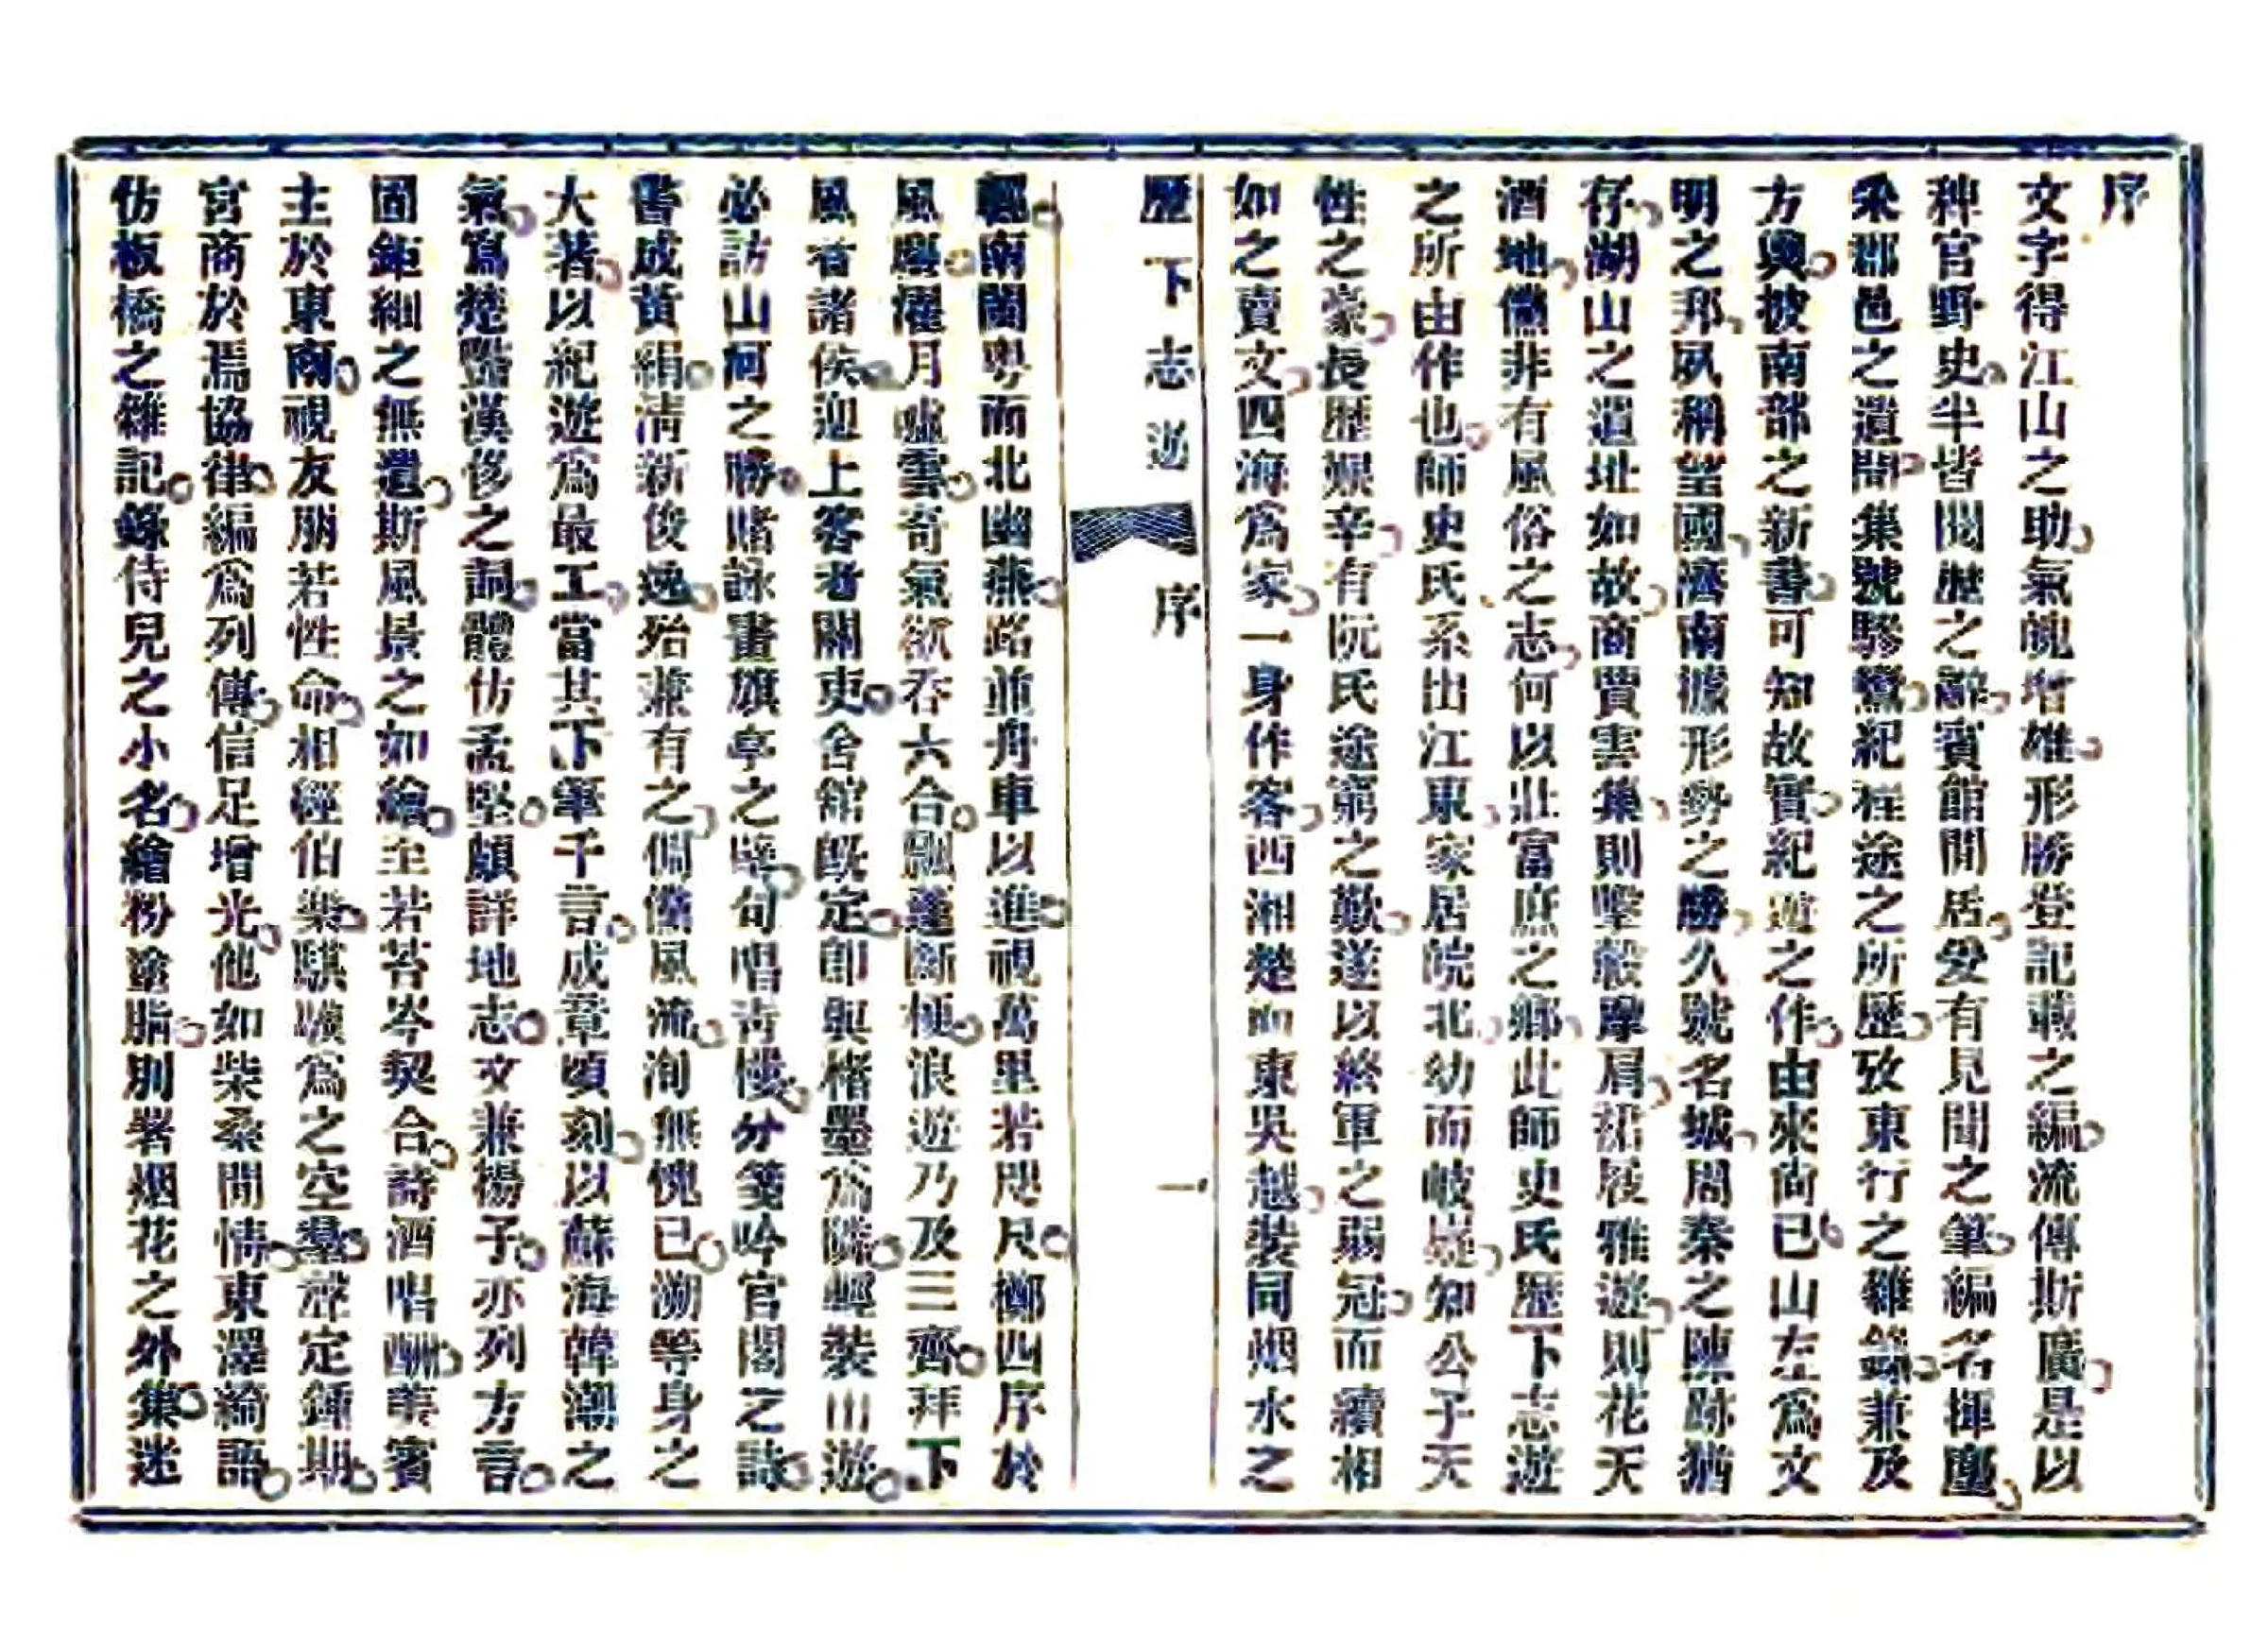 序
文字得江山之助氣魄增雄形勝登記載之編流傳斯廣是以
稗官野史半皆閱歷之辭賓館閒居爰有見聞之筆編名揮麈
彔郡邑之遺聞集號驂鸞紀程途之所歷攷東行之雜錄兼及
方輿披南部之新書可知故實紀遊之作由來尚已山左爲文
明之邦夙稱望國濟南據形勢之勝久號名城周秦之陳跡猶
存湖山之遺址如故商賈雲集則擊轂摩肩裙屐雅遊則花天
酒地儻非有風俗之志何以壯富庶之鄉此師史氏歷下志遊
之所由作也師史氏系出江東家居皖北幼而岐嶷知公子天
性之豪長歷艱辛有阮氏途窮之歎遂以終軍之弱冠而續相
如之賣文四海爲家一身作客西湘楚而東吳越裝同烟水之
歷下志遊 序 一
南閩粵而北幽燕路並舟車以進視萬里若咫尺擲四序於
風塵濯月噓雲奇氣欲吞六合飄蓬斷梗浪遊乃及三齊拜下
風者諸侯迎上客者關吏舍館既定即與楮墨爲隣輕裝出遊
必訪山河之勝賭詠畫旗亭之壁句唱青樓分箋吟官閣之詩
書成黃絹清新俊逸殆兼有之倜儻風流洵無愧已溯等身之
大著以紀遊爲最工當其下筆千言成章頃刻以蘇海韓潮之
氣爲楚豔漢侈之詞體仿孟堅頗詳地志文兼楊子亦列方言
固鉅細之無遺斯風景之如繪至若苔岑契合詩酒唱酬美賓
主於東南視友朋若性命相經伯樂騏驥爲之空羣辭定鍾期
宮商於焉協律編爲列傳信足增光他如柴桑閒情東澤綺語
仿板橋之雜記錄侍兒之小名繪粉塗脂別署烟花之外集迷